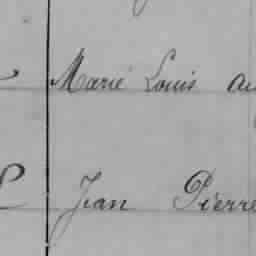 Marie Louis au
Jean Pierre